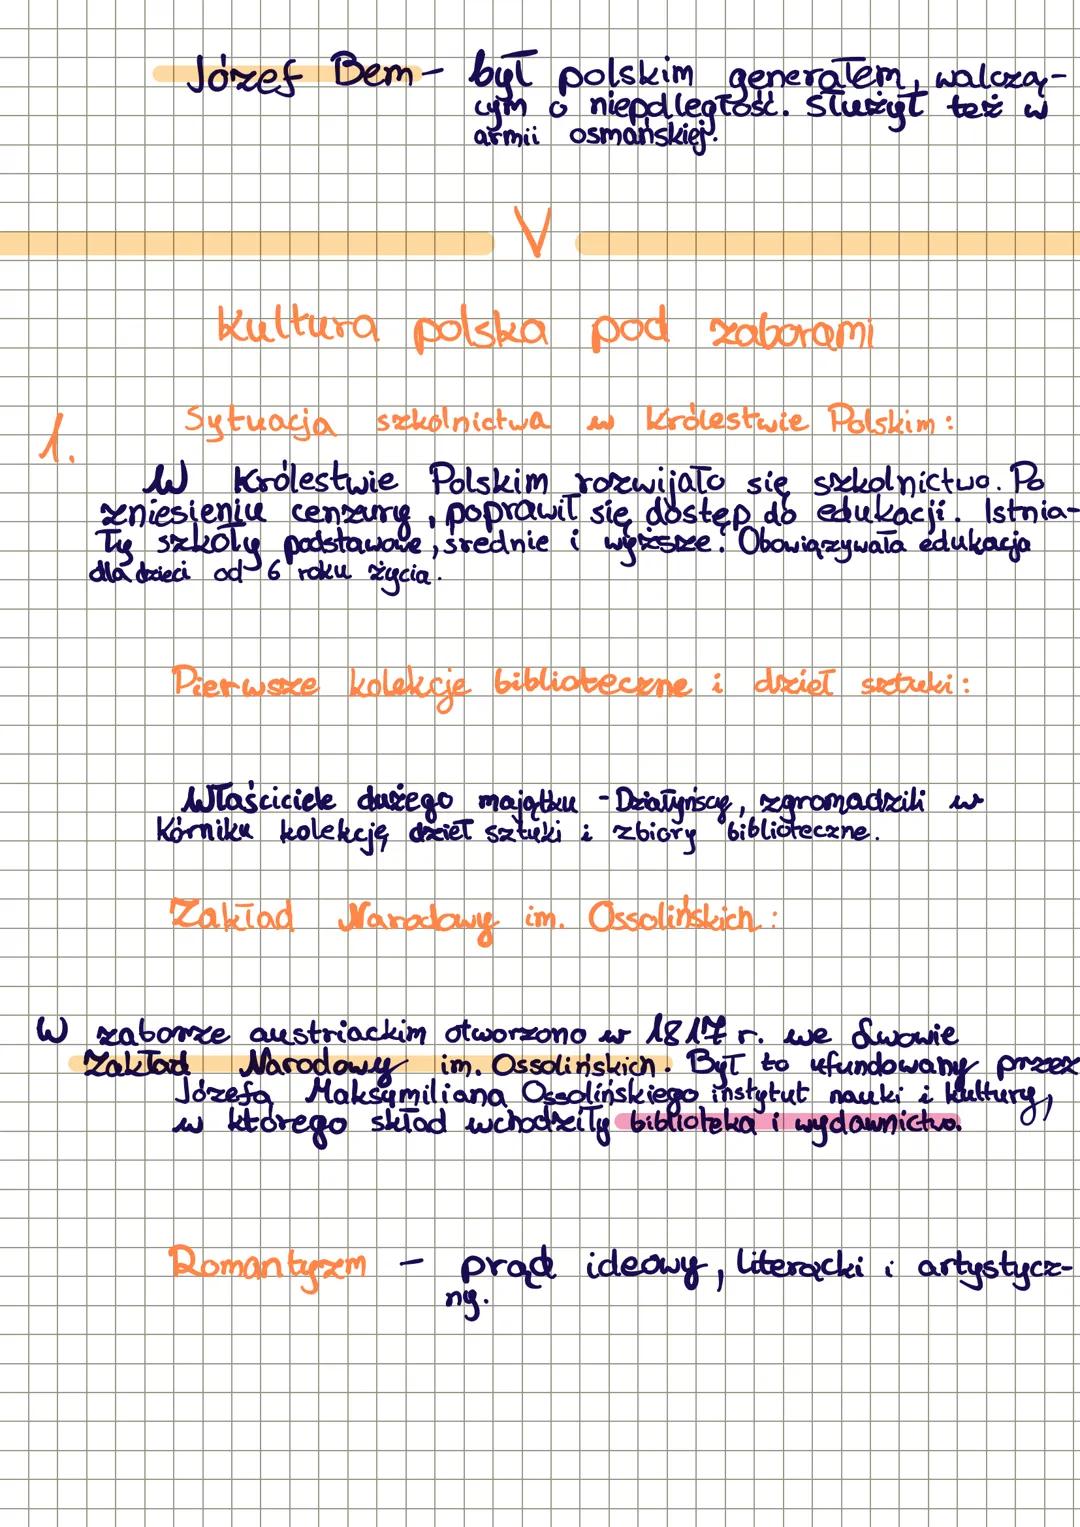 Józef Bem - był polskim generałem, walczą-
cym o niepdległość. Służył też w
armii osmańskiej.
V
Kultura polska pod zaborami
1. Sytuacja szkolnictwa w Królestwie Polskim:
W Królestwie Polskim rozwijało się szkolnictwo. Po
zniesieniu cenzury, poprawił się dostęp do edukacji. Istnia-
ły szkoły podstawowe, średnie i wyższe. Obowiązywała edukacja
dla dzieci od 6 roku życia.
Pierwsze kolekcje biblioteczne i dzieł sztuki:
Właściciele dużego majątku - Działyńscy, zgromadzili w
Kórniku kolekcję dzieł sztuki i zbiory biblioteczne.
Zakład Narodowy im. Ossolińskich:
W zaborze austriackim otworzono w 1817 r. we Lwowie
Zakład Narodowy im. Ossolińskich. Był to ufundowany przez
Józefa Maksymiliana Ossolińskiego instytut nauki i kultury,
w którego skład wchodziły biblioteka i wydawnictwo.
Romantyzm - prąd ideowy, literacki i artystycz-
ny.